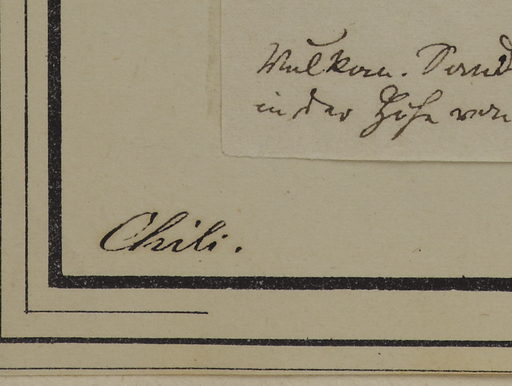 Vulkan. Sand
in der Höhe von
Chili.